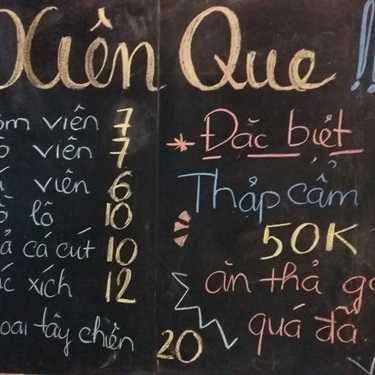 Xiên Que !!
ôm viên 7
ò viên 7
á viên 6
ồ lô 10
ả cá cút 10
úc xích 12
oai tây chiên 20
* Đặc biệt
Thập cẩm
50K
ăn thả ga
quá đã.